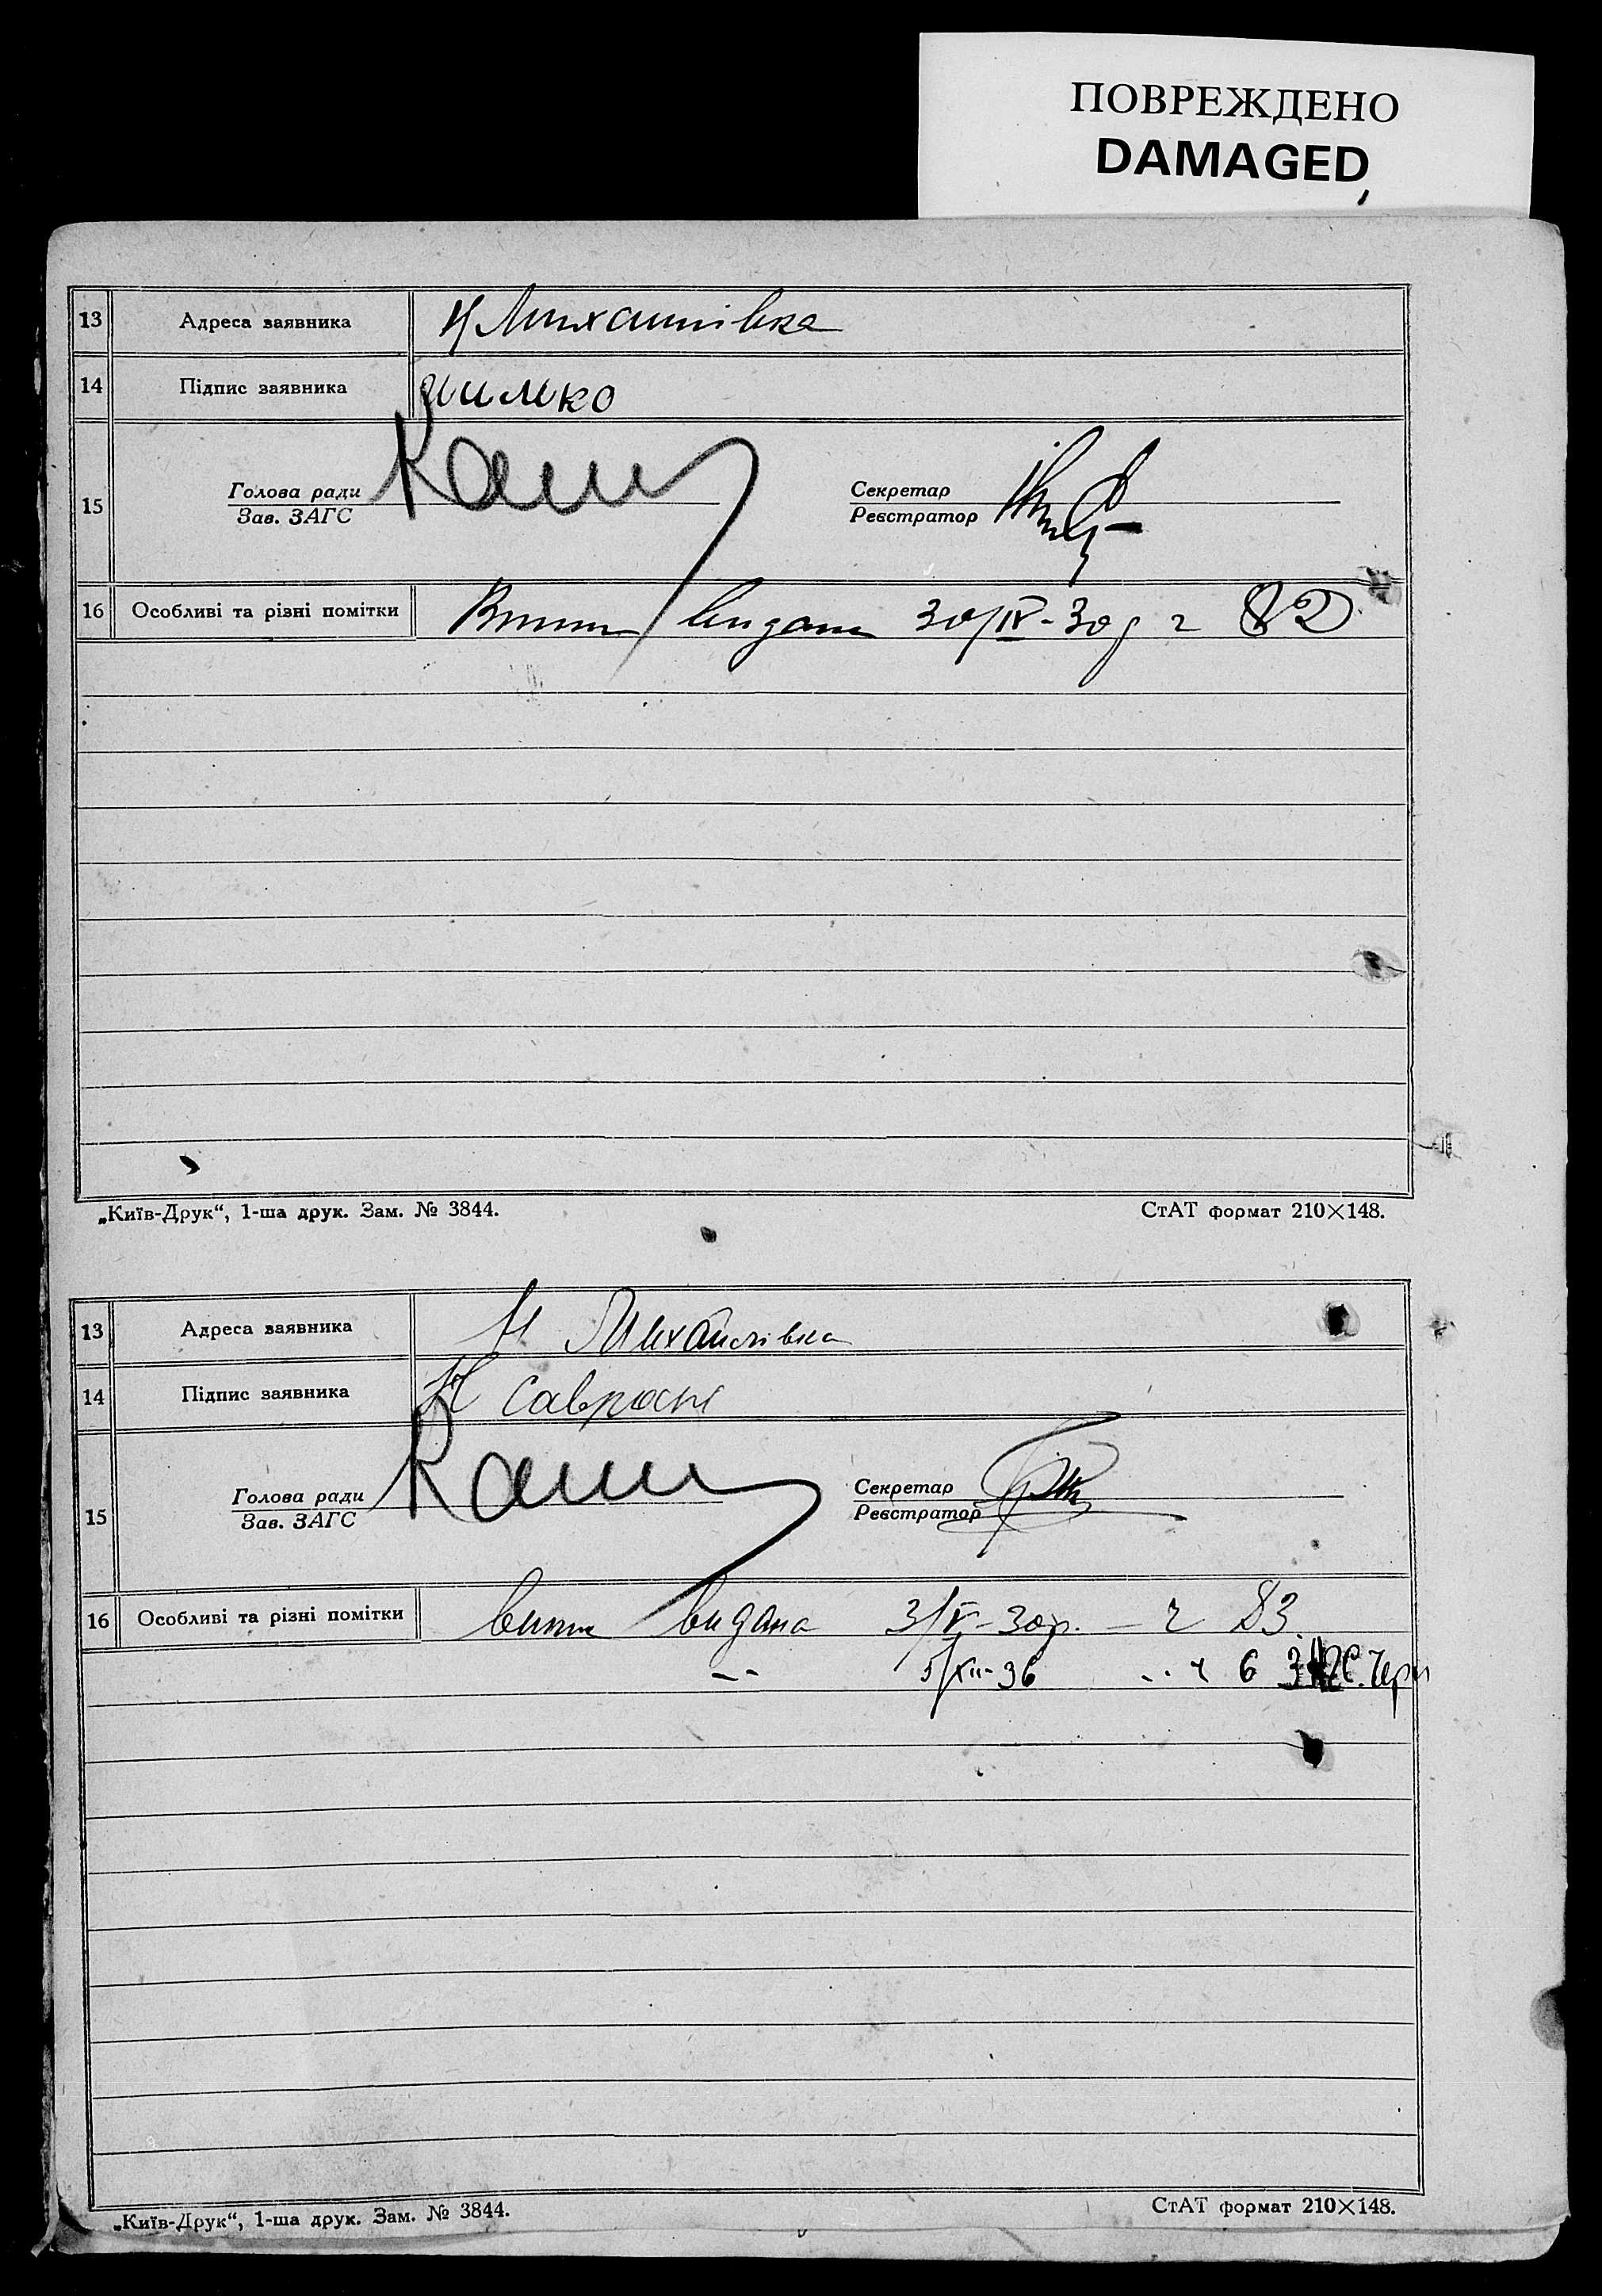 ПОВРЕЖДЕНО
DAMAGED
13 Адреса заявника Н Михайлівка
14 Підпис заявника
15 Голова ради Секретар
Зав. ЗАГС Реєстратор
16 Особливі та різні помітки видана 30/IV-30р ч 82
„Київ-Друк“, 1-ша друк. Зам. № 3844. СтАТ формат 210×148.
13 Адреса заявника Н Михайлівка
14 Підпис заявника
15 Голова ради Секретар
Зав. ЗАГС Реєстратор
16 Особливі та різні помітки видана 3/V-30р. — ч 83.
5/XII-36 ч 6
„Київ-Друк“, 1-ша друк. Зам. № 3844. СтАТ формат 210×148.